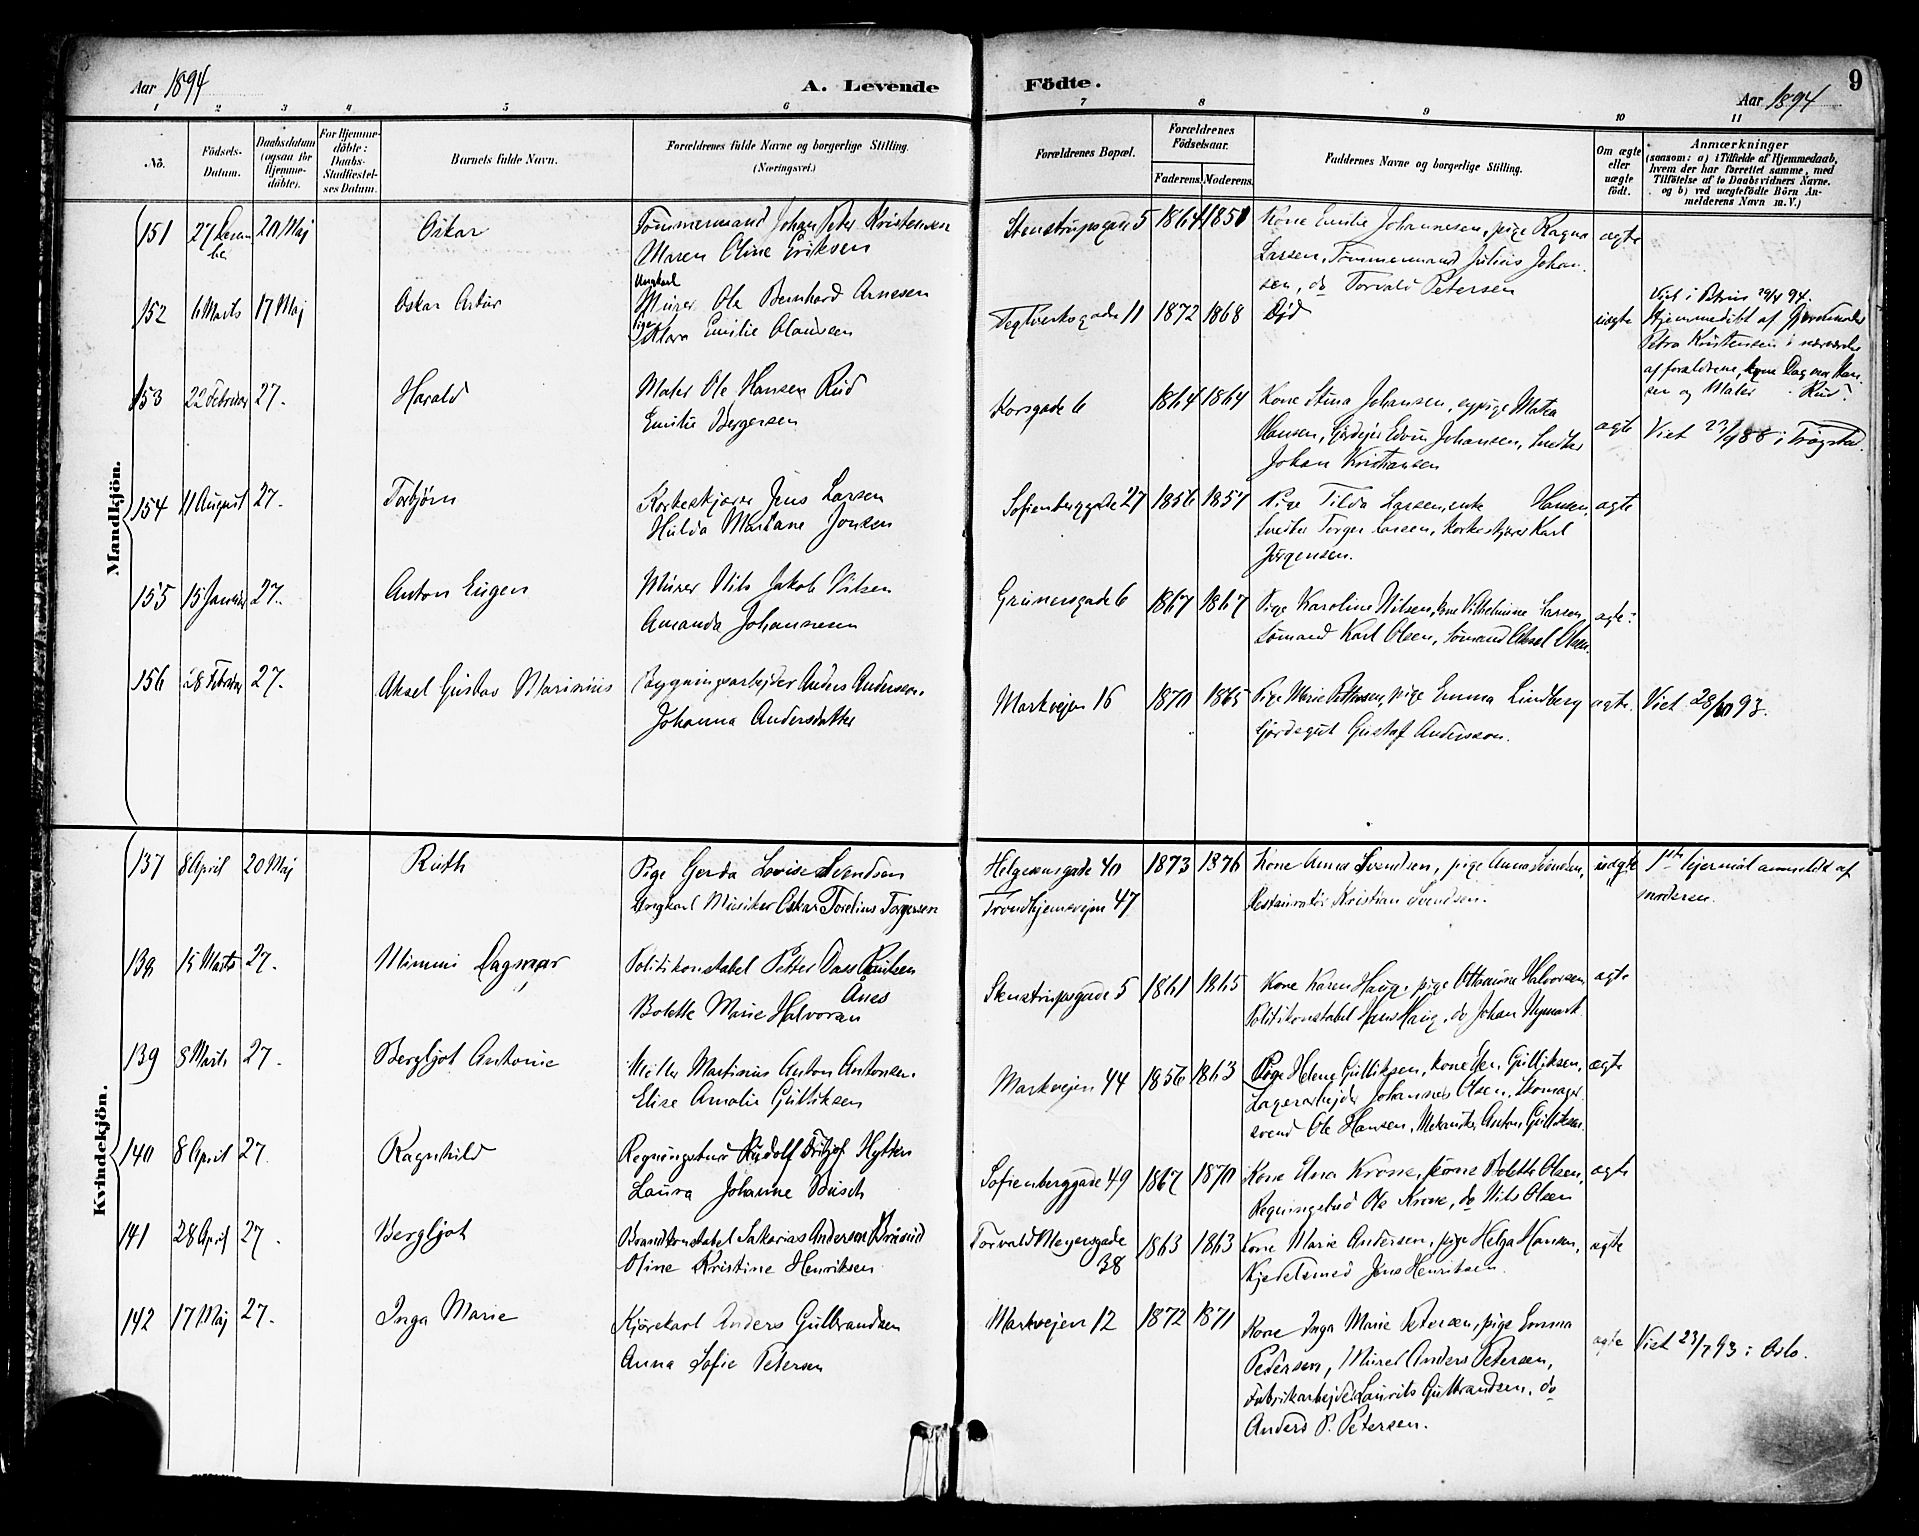 Aar 1894
A. Levende
Födte.
Aar 1894
9
1 2 3 4 5 6 7 8 9 10 11
No.
Födsels-Datum.
Daabsdatum (ogsaa for Hjemmedöbte).
For Hjemmedöbte: Daabs-Stadfæstelses Datum.
Barnets fulde Navn.
Forældrenes fulde Navne og borgerlige Stilling. (Næringsvei.)
Forældrenes Bopæl.
Forældrenes Födselsaar.
Faderens. Moderens.
Faddernes Navne og borgerlige Stilling.
Om ægte eller uægte födt.
Anmærkninger
(saasom: a) i Tilfælde af Hjemmedaab, hvem der har forrettet samme, med Tilföielse af to Daabsvidners Navne, og b) ved uægtefödte Börn Anmelderens Navn m. V.)
Mandkjön.
151 27 20 Maj Oskar Tømmermand Johan Peter Kristensen Stenstrupsgade 5 1864 1851 Kone Emilie Johannesen, pige Ragna ægte
Maren Oline Eriksen Larsen, Tømmermand Julius Johan-
sen, do Torvald Petersen
152 6 Marts 17 Maj Oskar Artur Ungkarl Murer Ole Bernhard Arnesen Teglverksgade 11 1872 1868 Død uægte
Pige Klara Emilie Olausen Hjemmedøbt af Jordmoder
Petra Kristensen i nærværelse
af forældrene, kone Dagmar Han-
sen og Maler Rud.
153 22 Februar 27. Harald Maler Ole Hansen Rud Korsgade 6 1864 1864 Kone Stina Johansen, sypige Matea ægte Viet 23/9 88 i Trøgstad.
Emilie Bergersen Hansen, Gårdejer Edvin Johansen, Snedker
Johan Kristiansen
154 11 August 27. Torbjørn Korkeskjærer Jens Larsen Sofienberggade 27 1856 1857 Pige Tilda Larsen, enke Hansen, ægte
Hulda Mariane Jonsen Snedker Torger Larsen, Korkeskjærer Karl
Jørgensen.
155 15 Januar 27. Anton Eugen Murer Nils Jakob Nilsen Grünersgade 6 1867 1867 Pige Karoline Nilsen, kone Vilhelmine Larsen ægte.
Amanda Johannesen Sømand Karl Olsen, Sømand Aksel Olsen.
156 28 Februar 27. Aksel Gustav Marinius Bygningsarbejder Anders Andersson. Markvejen 16 1870 1865 Pige Marie Pettersen, pige Emma Lindberg ægte. Viet 28/10 93.
Johanna Andersdatter Gårdsgut Gustaf Andersson.
Kvindekjön.
137 8 April 20 Maj Ruth Pige Gerda Lovise Svendsen Helgesensgade 40 1873 1876 Kone Anna Svendsen, pige Anna Svendsen, uægte 1ste lejermål anmeldt af
Ungkarl Musiker Oskar Torelius Torgersen Trondhjemsvejen 47 Restauratør Kristian Svendsen. moderen.
138 15 Marts 27. Mimmi Dagmar Politikonstabel Petter Aass Paulsen Stenstrupsgade 5 1861 1865 Kone Karen Haug, pige Ottomine Halvorsen ægte
Aaes
Bolette Marie Halvorsen Politikonstabel Hans Haug, do Johan Nymark
139 8 Marts 27. Bergljot Antonie Møller Martinus Anton Antonsen. Markvejen 44 1856 1863 Pige Helene Gulliksen, kone Gulliksen, ægte
Elise Amalie Gulliksen Lagerarbejder Johannes Olsen, Skomager
svend Ole Hansen, Mekaniker Anton Gulliksen.
140 8 April 27 Ragnhild Regningsbud Rudolf Fritjof Hytten Sofienberggade 49 1867 1870 Kone Elna Krone, kone Bolette Olsen, ægte
Laura Johanne Busch Regningsbud Ole Krone, do Nils Olsen
141 28 April 27. Bergljot Brandkonstabel Sakarias Andersen Brusud Torvald Meyersgade 38 1863 1863 Kone Marie Andersen, pige Helga Hansen, ægte
Oline Kristine Henriksen Kjedelsmed Jens Henriksen.
142 17 Maj 27. Inga Marie Kjørekarl Anders Gulbrandsen Markvejen 12 1872 1871 Kone Inga Marie Petersen, pige Emma ægte Viet 23/7 93 i Oslo.
Anna Sofie Petersen Pedersen, Murer Anders Petersen,
Fabrikarbejder Laurits Gulbrandsen, do
Anders P. Petersen.